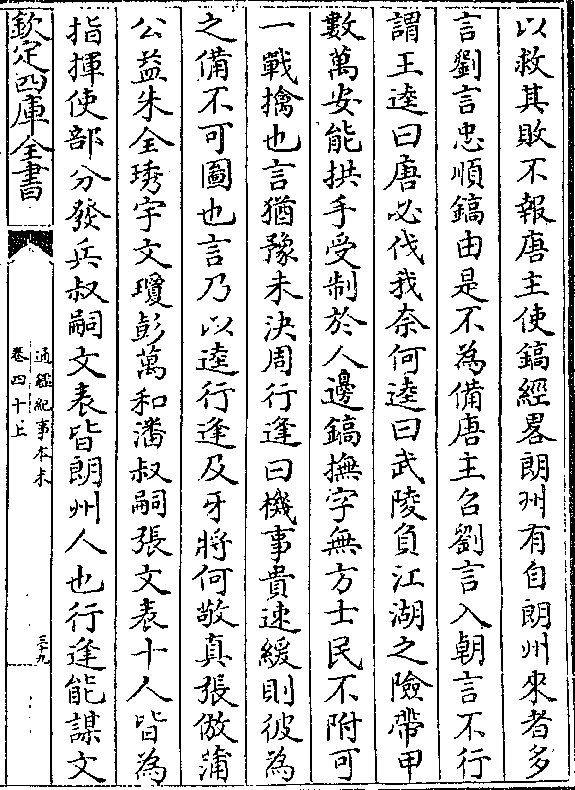 以救其敗不報唐主使鎬經畧朗州有自朗州來者多
言劉言忠順鎬由是不為備唐主召劉言入朝言不行
謂王逵曰唐必伐我奈何逵曰武陵負江湖之險帶甲
數萬安能拱手受制於人邊鎬撫字無方士民不附可
一戰擒也言猶豫未決周行逢曰機事貴速緩則彼為
之備不可圖也言乃以逵行逢及牙將何敬真張倣蒲
公益朱全琇宇文瓊彭萬和潘叔嗣張文表十人皆為
指揮使部分發兵叔嗣文表皆朗州人也行逢能謀文
欽定四庫全書
通鑑紀事本末
卷四十上
三十九